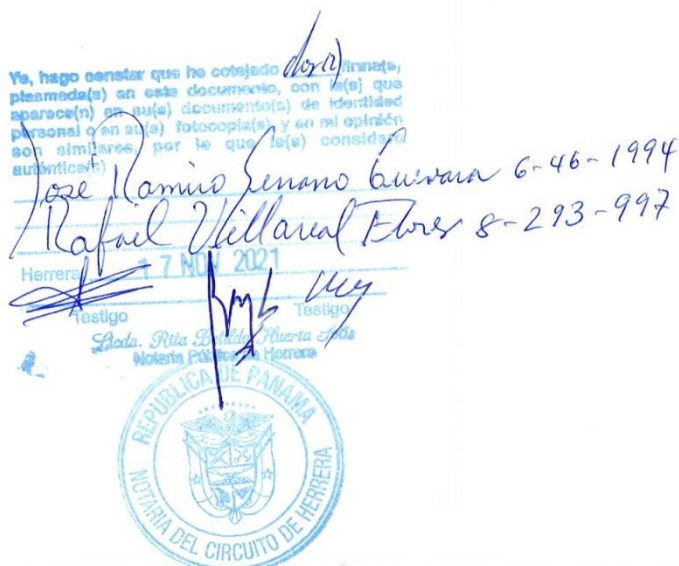 Yo, hago constar que he cotejado dos (2) firma(s),
plasmada(s) en este documento, con la(s) que
aparece(n) en su(s) documento(s) de identidad
personal o en su(s) fotocopia(s), y en mi opinión
son similares, por lo que la(s) considero
auténtica(s)
José Ramiro Serrano Guevara 6-46-1994
Rafael Villareal Flores 8-293-997
Herrera 17 NOV 2021
Testigo Testigo
Licda. Rita Huerta Solís
Notaria Pública de Herrera
REPUBLICA DE PANAMA
NOTARIA DEL CIRCUITO DE HERRERA